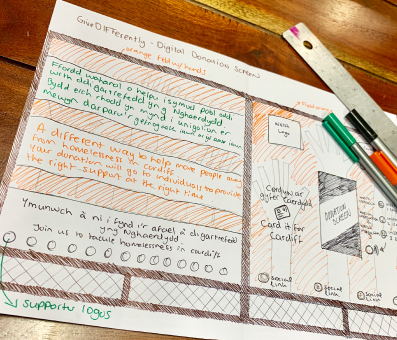 GiveDIFFerently - Digital Donation Screen
orange field w/hands
Ffordd wahanol o helpu i symud pobl oddi
wrth ddigartrefedd yng Nghaerdydd
Bydd eich rhodd yn mynd i unigolion er
mwyn darparu'r gefnogaeth
A different way to help more people away
from homelessness in Cardiff
Your donation will go to individuals to provide
the right support at the right time
Ymunwch â ni i fynd i'r afael â digartrefedd
yng Nghaerdydd
Join us to tackle homelessness in Cardiff
supporter logos
Logo
Cerdyn ar
gyfer Caerdydd
Card it for
Cardiff
DONATION
SCREEN
Social
Link
Social
Link
Social
Link